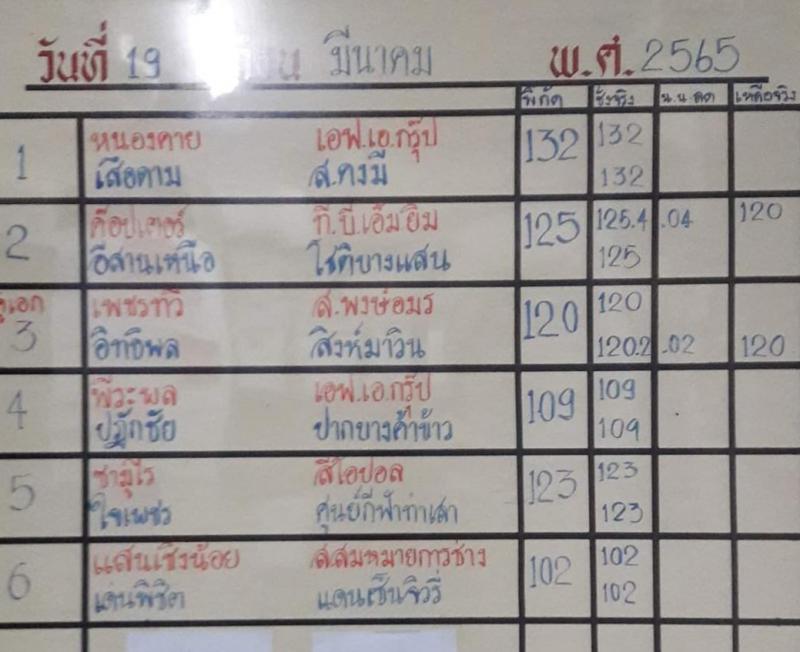 วันที่ 19 มีนาคม พ.ศ. 2565
พิกัด ชั่งจริง น.น.ลด เหลือจริง
1 หนองคาย เอฟ.เอ.กรุ๊ป 132 132
เสือดาม ส.คงมี 132
2 ก๊อปเตอร์ ที.บี.เอ็มยิม 125 125.4 .04 120
อีสานเหนือ โชติบางแสน 125
คู่เอก เพชรทวี ส.พงษ์อมร 120 120
3 อิทธิพล สิงห์มาวิน 120.2 .02 120
4 พีระพล เอฟ.เอ.กรุ๊ป 109 109
ปฏักชัย ปากบางคำข้าว 109
5 ซามูไร สีโอปอล 123 123
ใจเพชร ศูนย์กีฬาท่าเสา 123
6 แสนเชิงน้อย ส.สมหมายการช่าง 102 102
เด่นพิชิต แดนเซ็นจิวรี่ 102